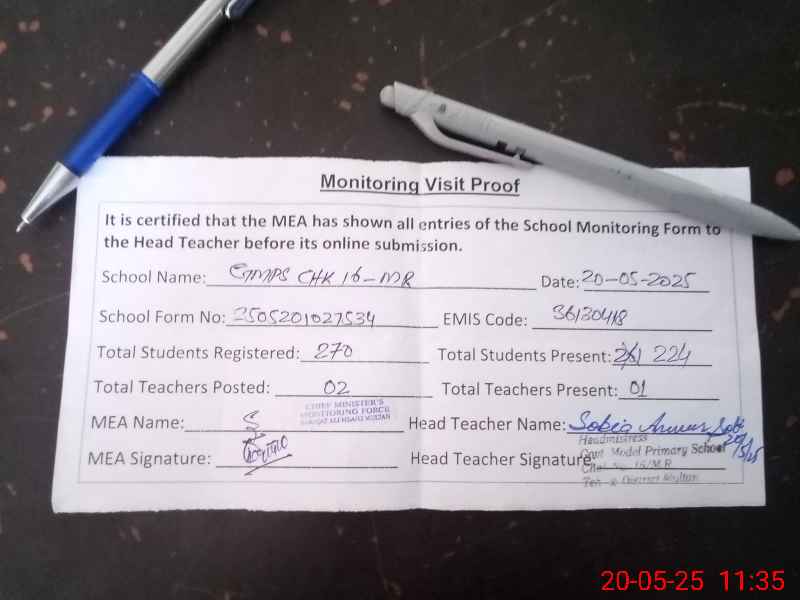 Monitoring Visit Proof
It is certified that the MEA has shown all entries of the School Monitoring Form to
the Head Teacher before its online submission.
School Name: GMPS CHK 16-MR Date: 20-05-2025
School Form No: 2505201027534 EMIS Code: 36130418
Total Students Registered: 270 Total Students Present: 224
Total Teachers Posted: 02 Total Teachers Present: 01
CHIEF MINISTER'S
MONITORING FORCE
MEA Name: Head Teacher Name: Sobia
Headmistress
MEA Signature: Head Teacher Signature:
Govt. Model Primary School
Chak No. 16/M.R
Teh & District Multan
20-05-25 11:35